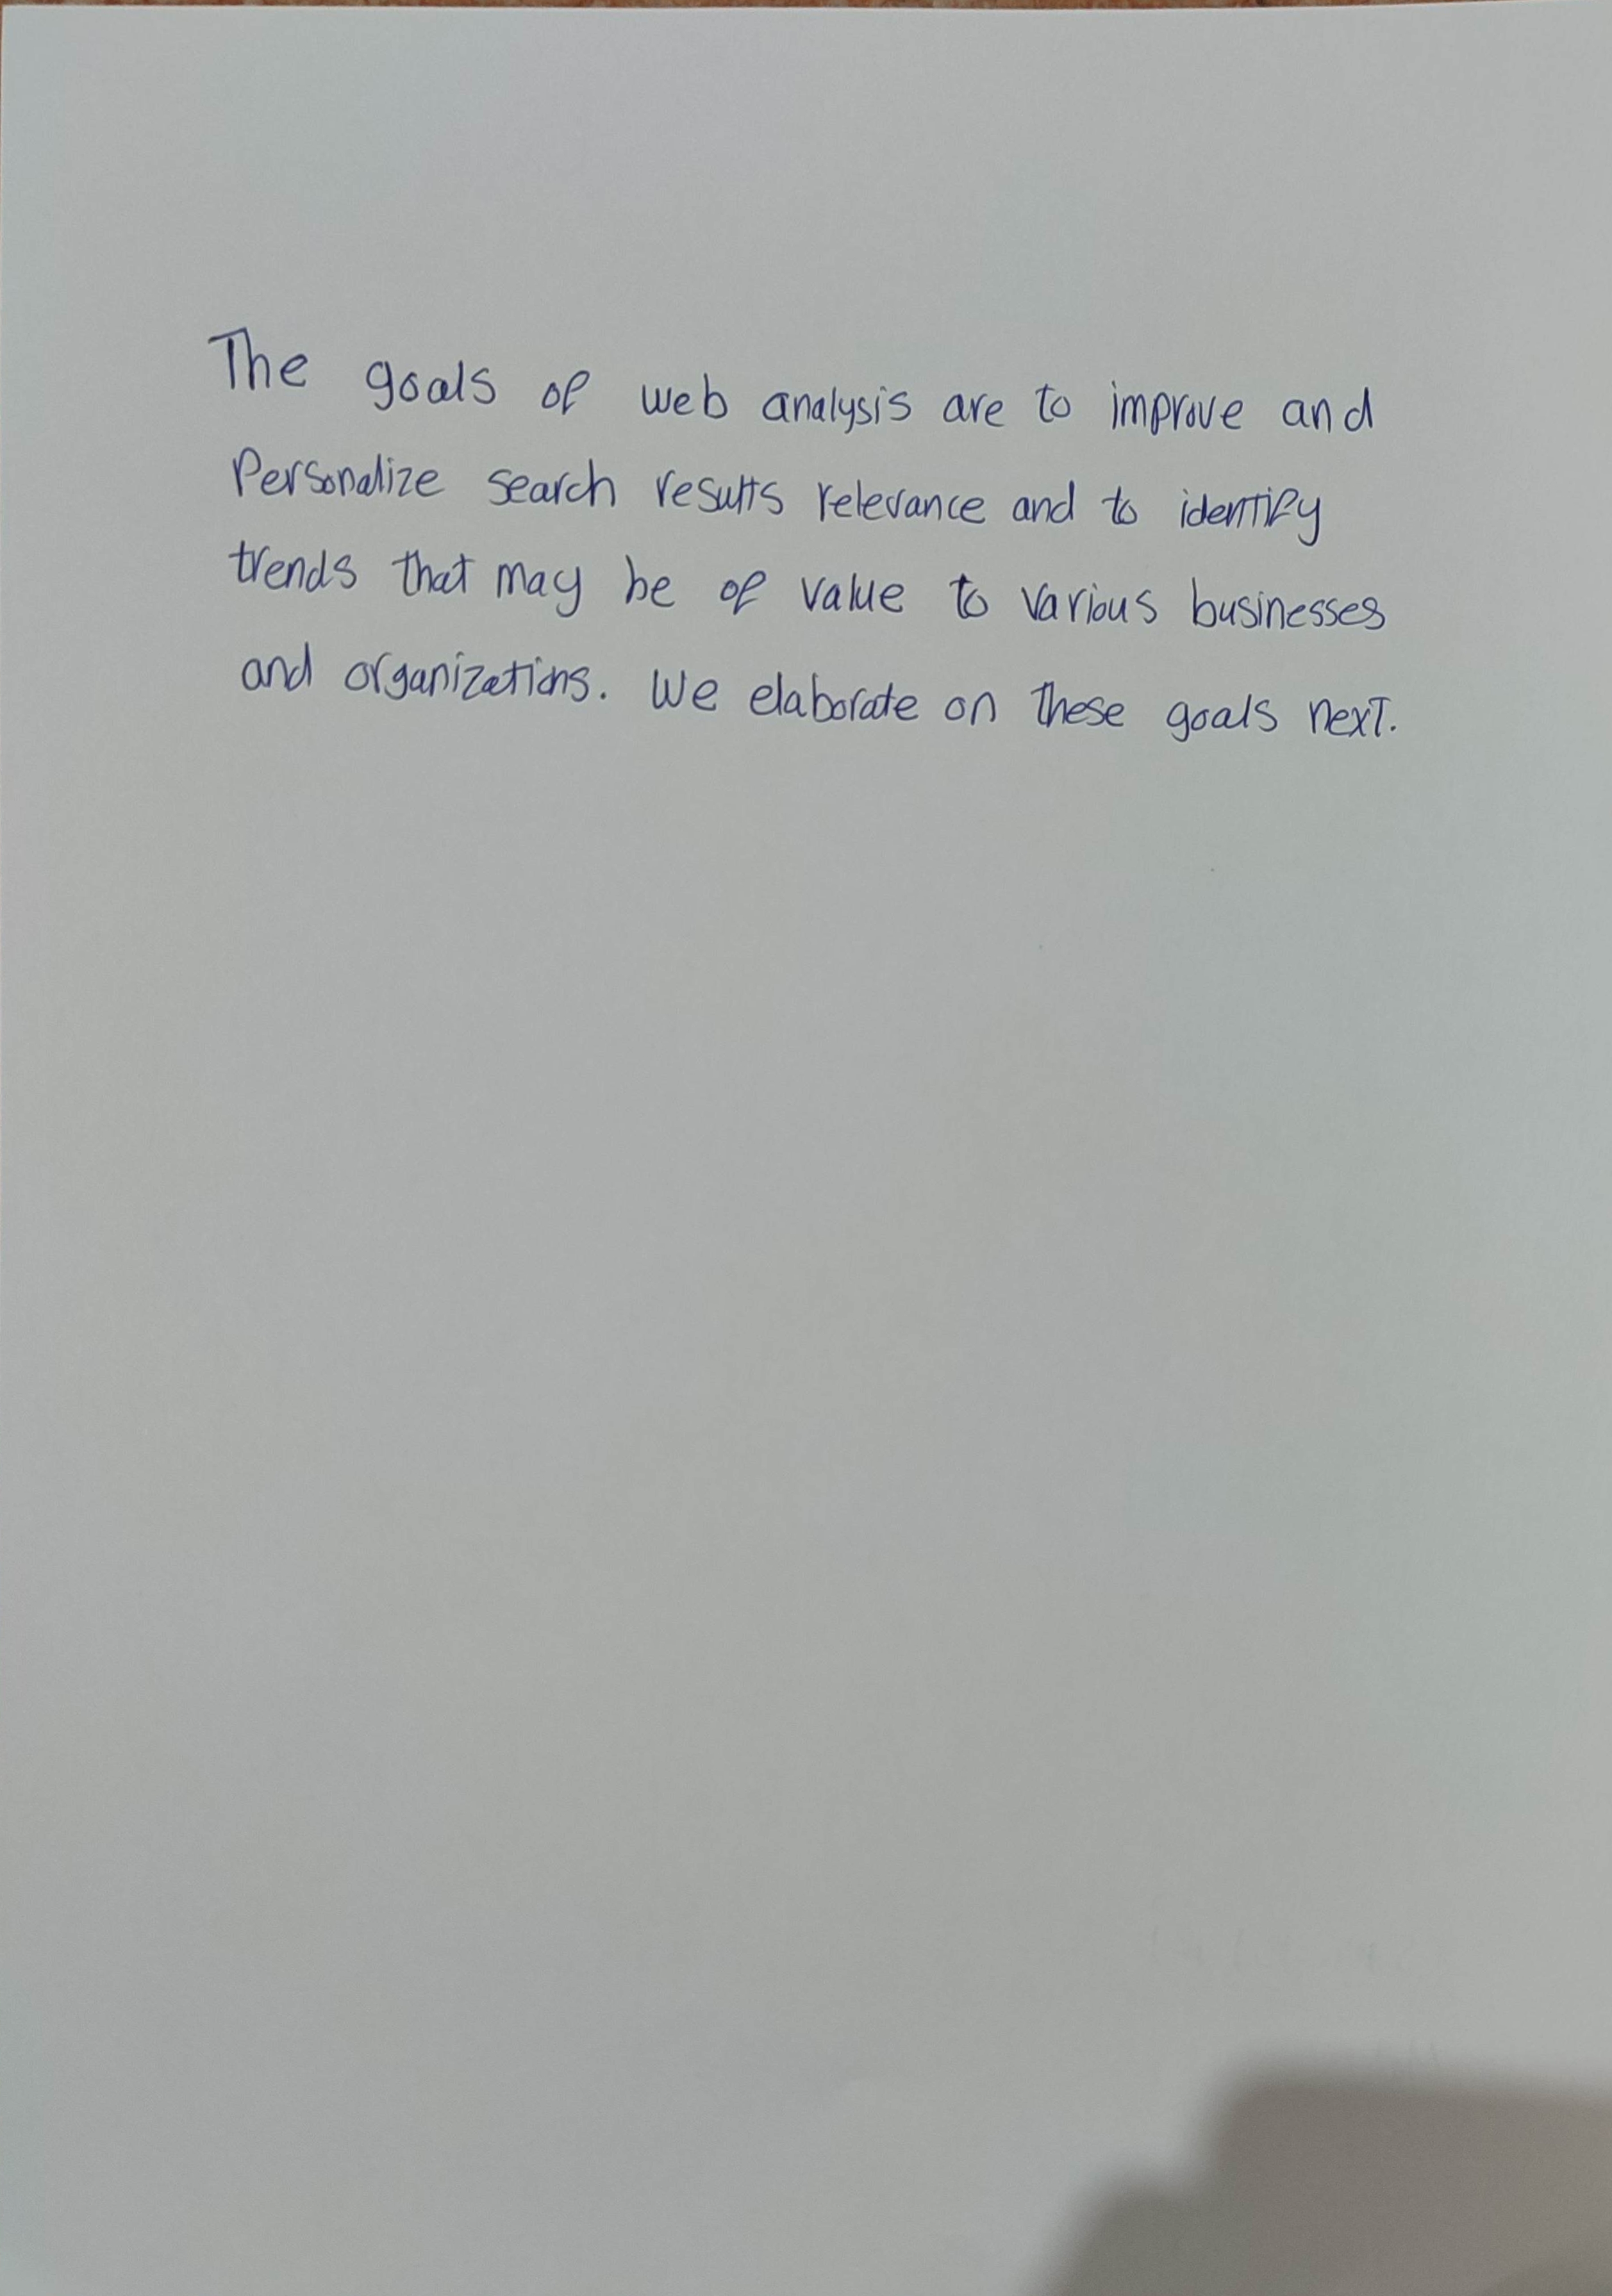 The goals of web analysis are to improve and
Personalize search results relevance and to identify
trends that may be of value to various businesses
and organizations. We elaborate on these goals next.